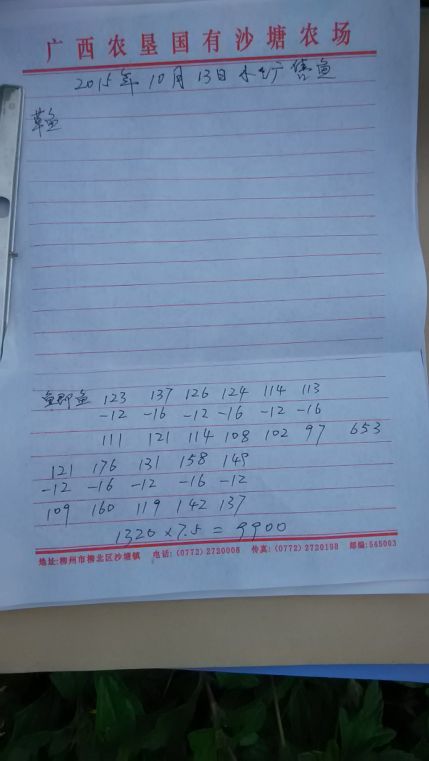 广西农垦国有沙塘农场
2015年10月13日水生厂售鱼
草鱼
鲫鱼 123 137 126 124 114 113
-12 -16 -12 -16 -12 -16
111 121 114 108 102 97 653
121 176 131 158 149
-12 -16 -12 -16 -12
109 160 119 142 137
1320×7.5=9900
地址:柳州市柳北区沙塘镇 电话:(0772)2720008 传真:(0772)2720198 邮编:545003